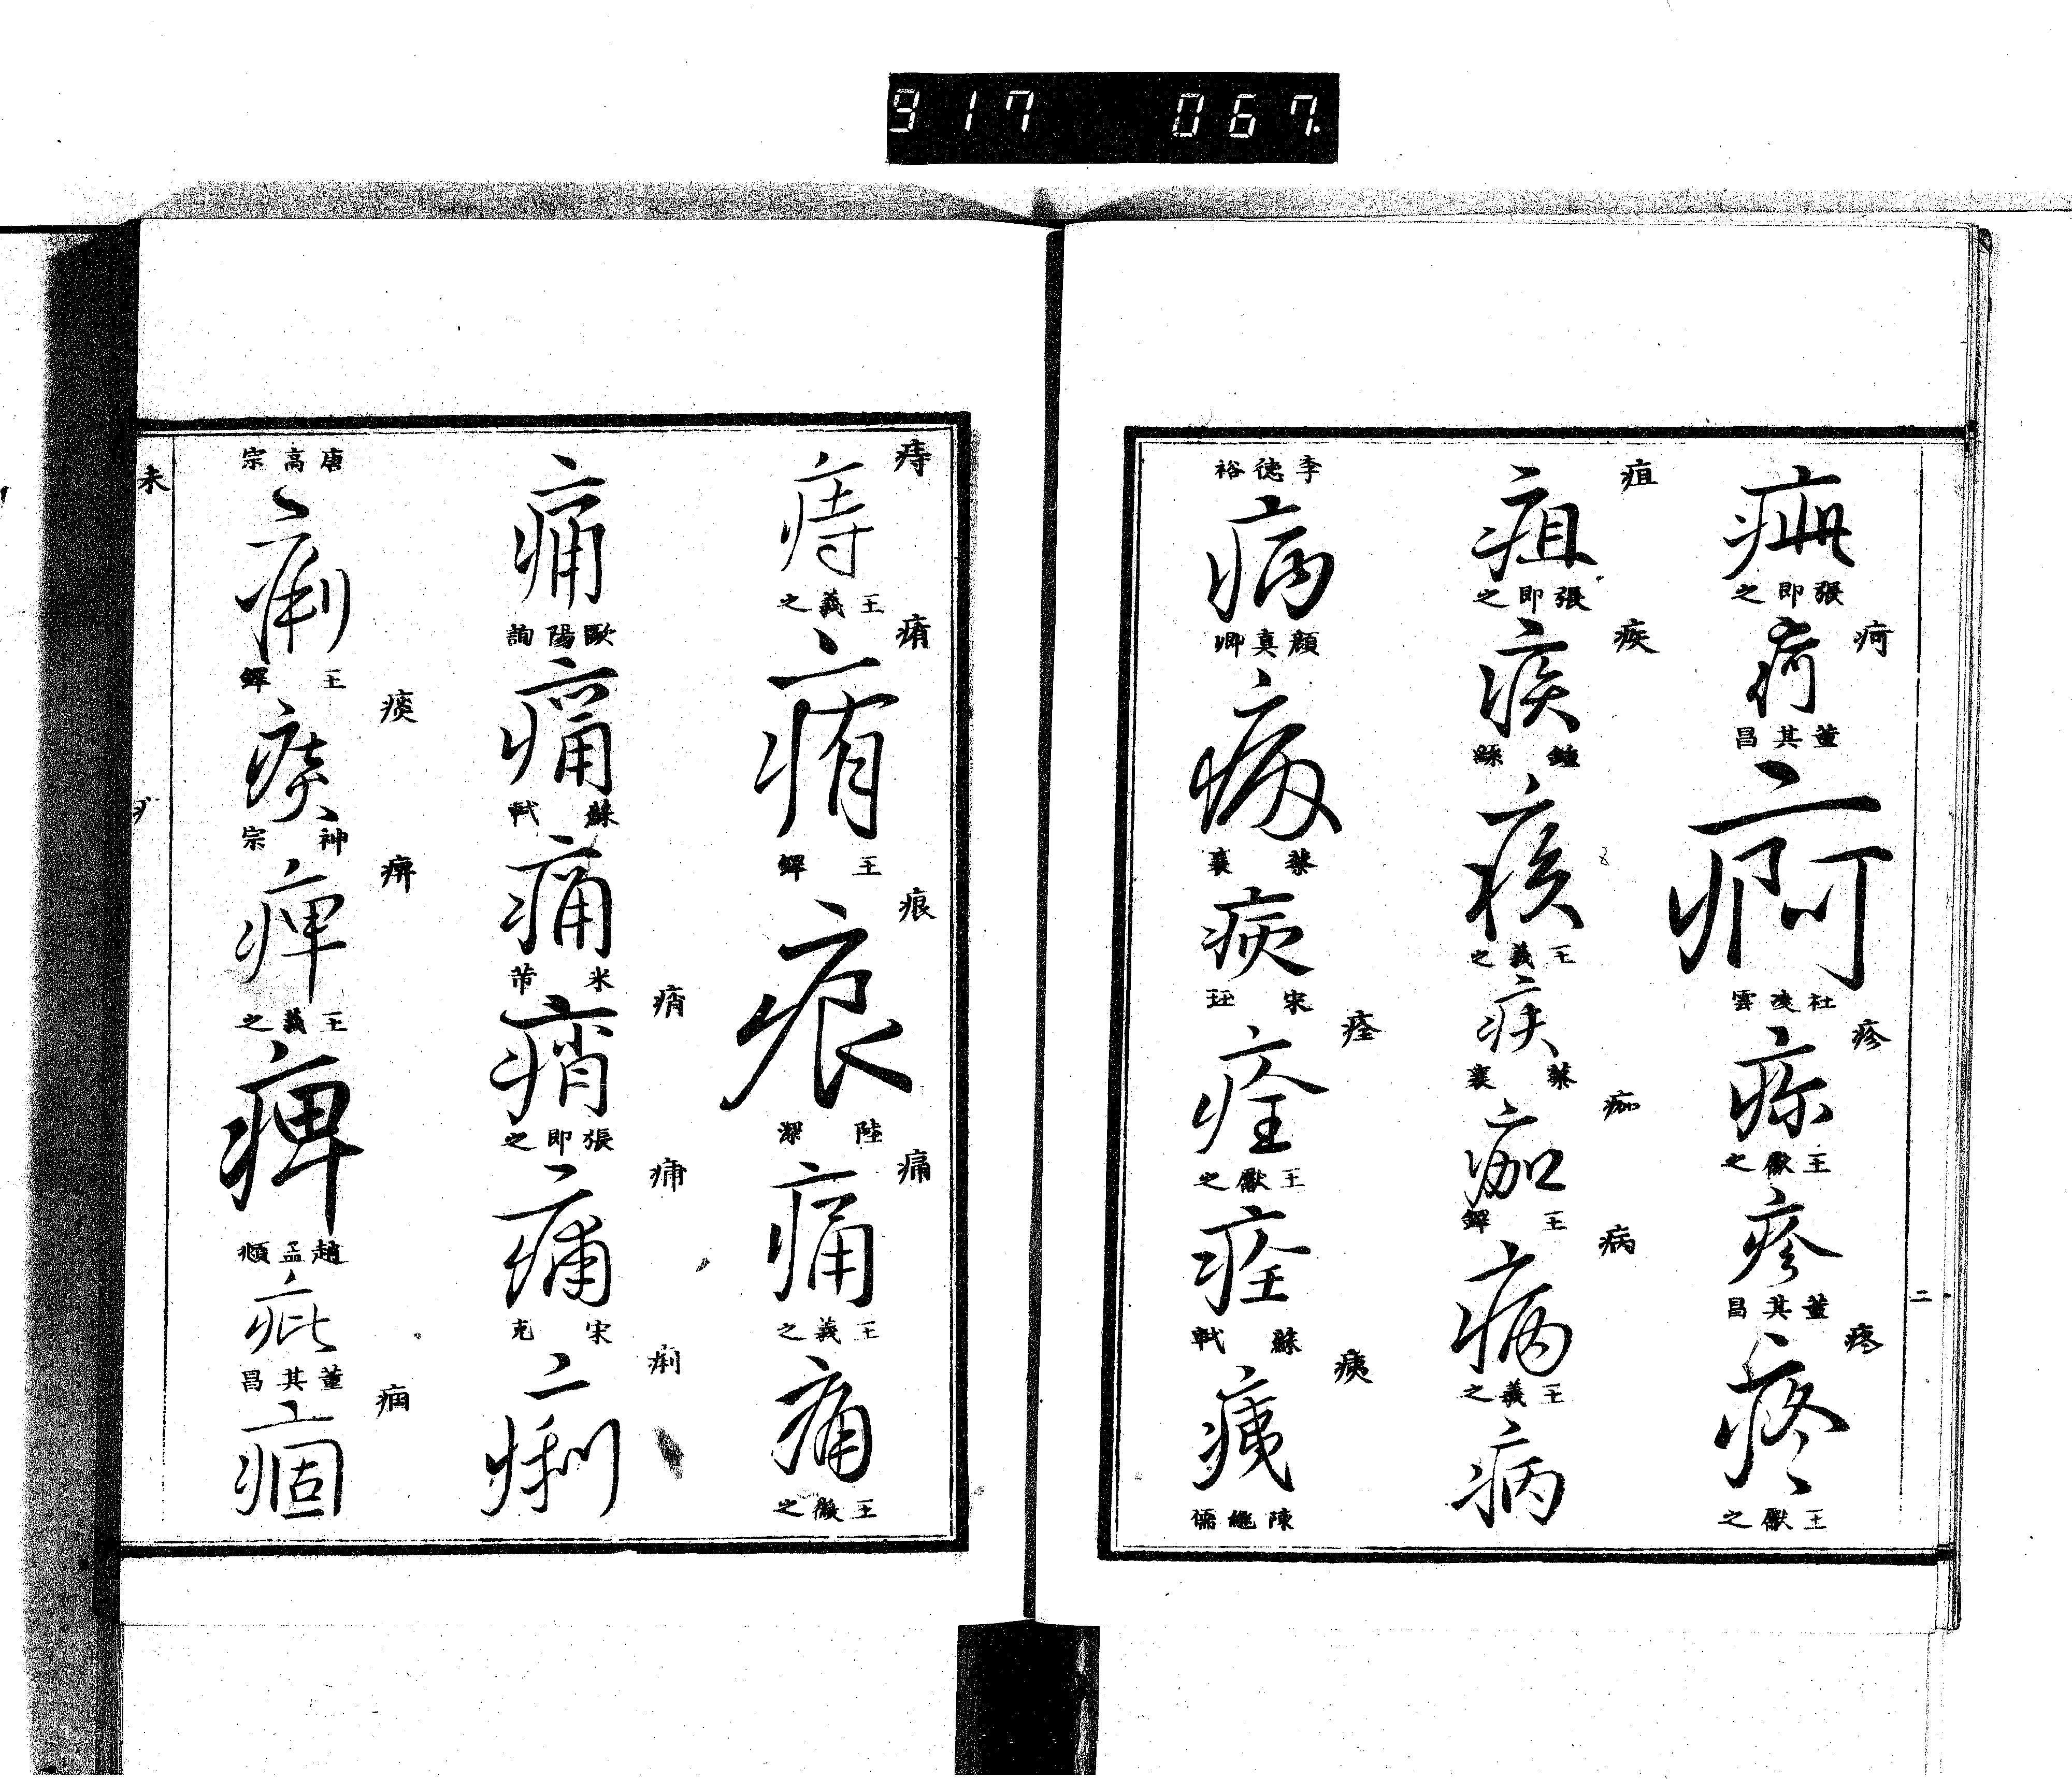 917 067.
張即之 疴 疴 董其昌 痾 杜凌雲 疹 疹 王獻之 疹 董其昌 疼 疼 王獻之
二
疽 疽 張即之 疾 疾 鍾繇 疾 王羲之 疾 蔡襄 痂 痂 王鐸 病 病 王羲之 病
李德裕 病 顏真卿 病 蔡襄 宋珏 痊 痊 王獻之 痊 蘇軾 痍 痍 陳繼儒
痔 痔 王羲之 痏 痏 王鐸 痕 痕 陸深 痛 痛 王羲之 痛 王徽之
痛 歐陽詢 痛 蘇軾 痛 米芾 痟 痟 張即之 痡 痡 宋克 痢 痢
唐高宗 痢 王鐸 痰 痰 神宗 痺 王羲之 痺 趙孟頫 疵 董其昌 痼 痼
未